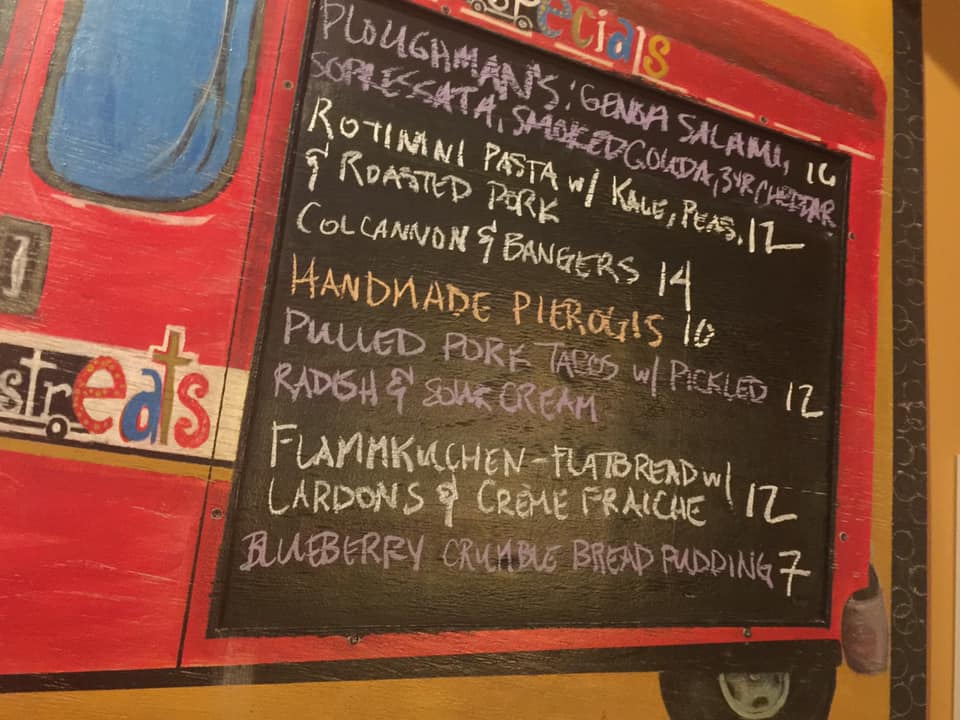 specials
PLOUGHMAN'S: GENOA SALAMI,
SOPRESSATA, SMOKED GOUDA, 3YR CHEDDAR 16
ROTINNI PASTA w/ KALE, PEAS, 12
& ROASTED PORK
COLCANNON & BANGERS 14
HANDMADE PIEROGIS 10
PULLED PORK TACOS w/ PICKLED 12
RADISH & SOUR CREAM
FLAMMKUCHEN - FLATBREAD w/
LARDONS & CRÈME FRAICHE 12
BLUEBERRY CRUMBLE BREAD PUDDING 7
streats